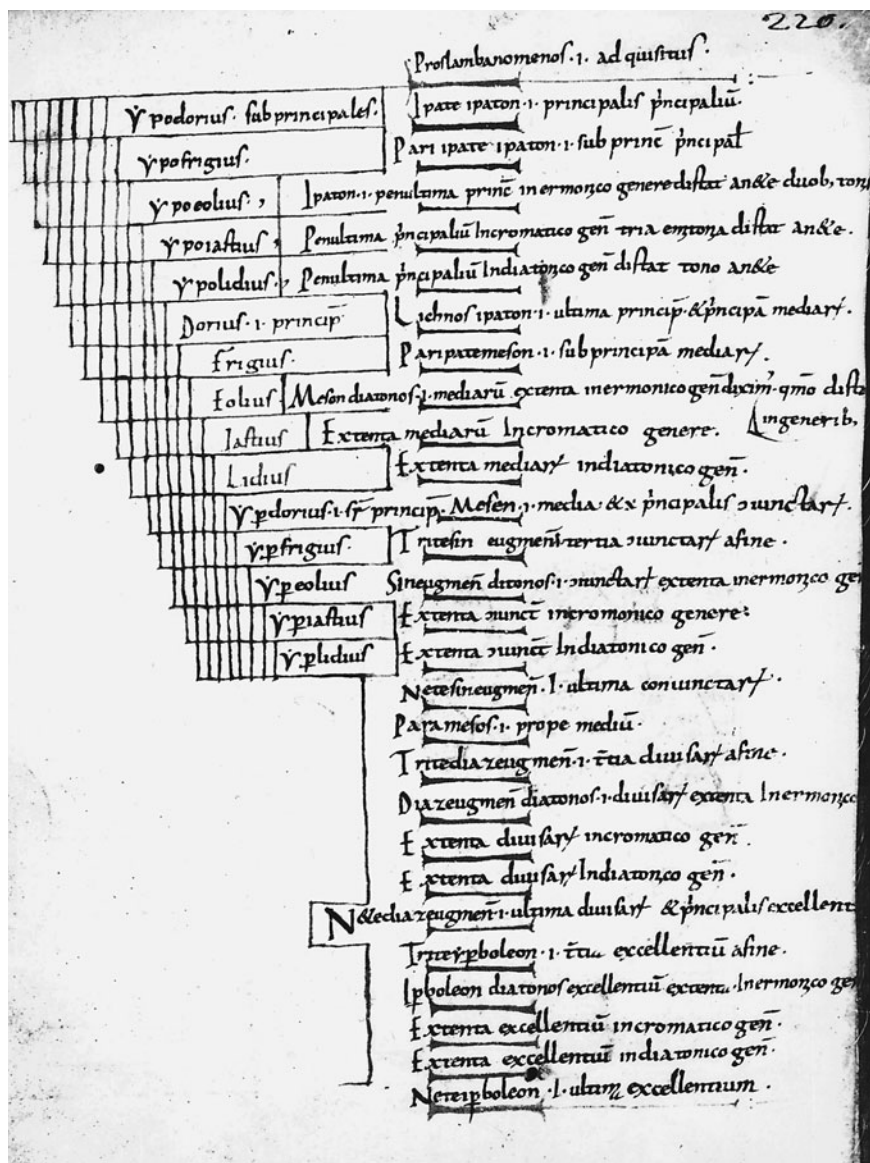 220.
Proslambanomenos · i · ad quisitus ·
ẏpodorius · subprincipales · Ipate ipaton · i · principalis p̄ncipaliū
ẏpofrigius · Pari ipate ipaton · i · sub princ̄ p̄ncipal̄
ẏpoeolius · , Ipaton · i · penultima princ̄ in ermonico genere distat an&e duob, tonis
ẏpoiastius , Penultima p̄ncipaliū Incromatico gen̄ tria distat an&e .
ẏpolidius · , Penultima p̄ncipaliū Indiatonico gen̄ distat tono an&e
Dorius · i · princip̄ Lichnos ipaton · i · ultima princip̄ · &p̄ncipā mediaꝝ .
Frigius · Paripatemeson · i · subprincipā mediaꝝ .
Eolius Meson diatonos · i · mediarū extenta inermonico gen̄ dixim̄ · qm̄o dista
Iastius Extenta mediarū Incromatico genere . ingenerib,
Lidius Extenta mediaꝝ indiatonico gen̄ .
ẏꝑdorius · i · sr̄ principā · Mesen · i · media &x p̄ncipalis ɔiunctaꝝ .
ẏꝑfrigius · Tritesin eugmen̄ i tertia ɔiunctaꝝ afine .
ẏꝑeolius Sineugmen̄ ditonos · i · ɔiunctaꝝ extenta inermonico gen
ẏꝑiastius Extenta ɔiunct̄ incromonico genere :
ẏꝑlidius Extenta ɔiunct̄ Indiatonico gen̄ .
Netesineugmen̄ · I · ultima coniunctaꝝ .
Paramesos · i · prope mediū .
Tritediazeugmen̄ · i · t̄tia diuisaꝝ afine .
Diazeugmen̄ diatonos · i · diuisaꝝ extenta Inermonico
Extenta diuisaꝝ incromatico gen̄ .
Extenta diuisaꝝ Indiatonico gen̄ .
N&ediazeugmen̄ · i · ultima diuisaꝝ &p̄ncipalis excellent
Triteẏꝑboleon · i · t̄tia excellentiū afine .
Iꝑboleon diatonos excellentiū extenta · Inermonico gen
Extenta excellentiū incromatico gen̄ .
Extenta excellentiū indiatonico gen̄ .
Neteiꝑboleon · I · ultima excellentium .